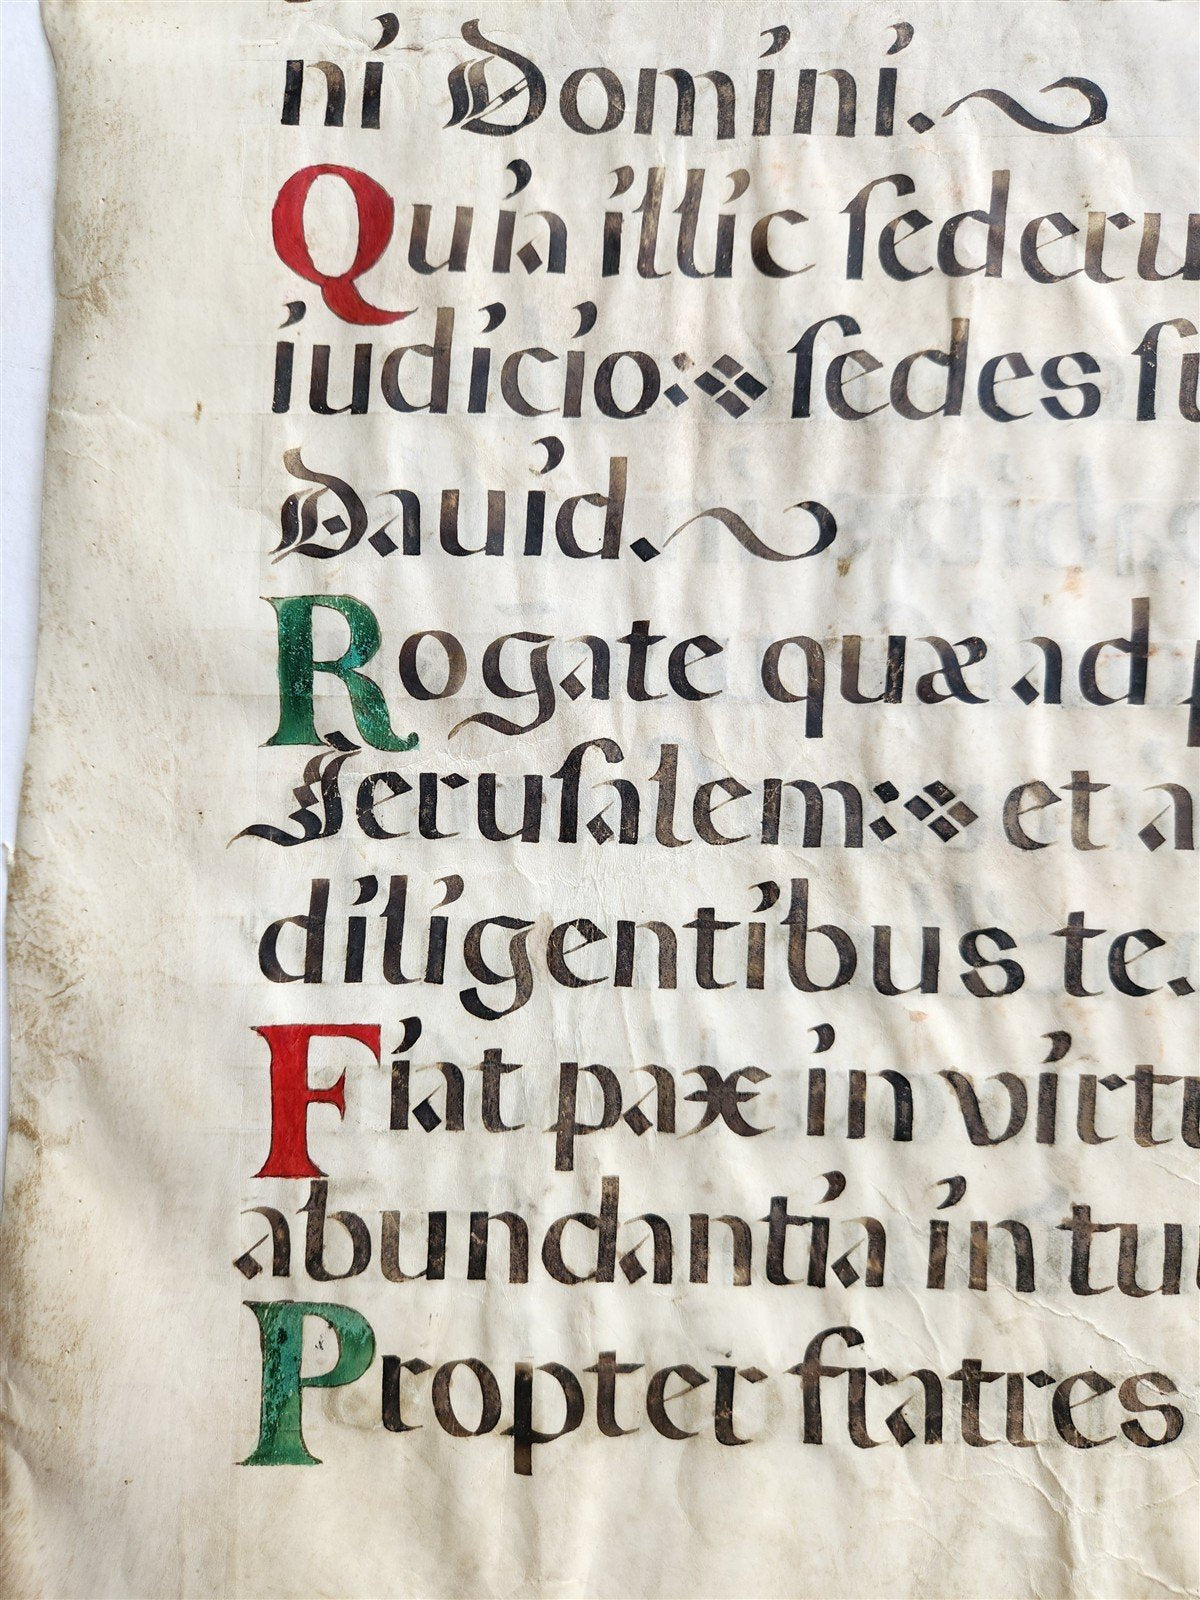 ni Domini.
Quia illic ſederu
iudicio: ſedes ſu
Dauid.
Rogate quæ ad p
Ieruſalem: et a
diligentibus te.
Fiat pax in virtu
abundantia in tu
Propter fratres